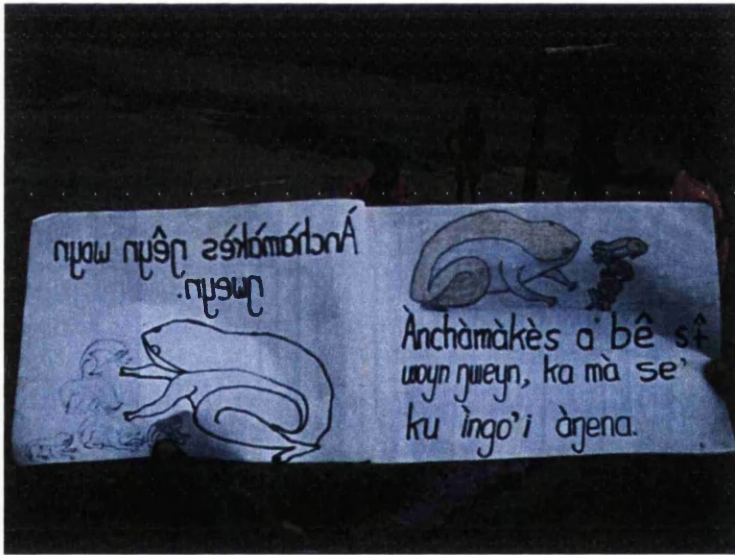 Ànchàmàkès ŋêyn woyn
ŋweyn.
Ànchàmàkès a bê sɨ̂
woyn ŋweyn, ka mà se'
ku ìngo'i àŋena.